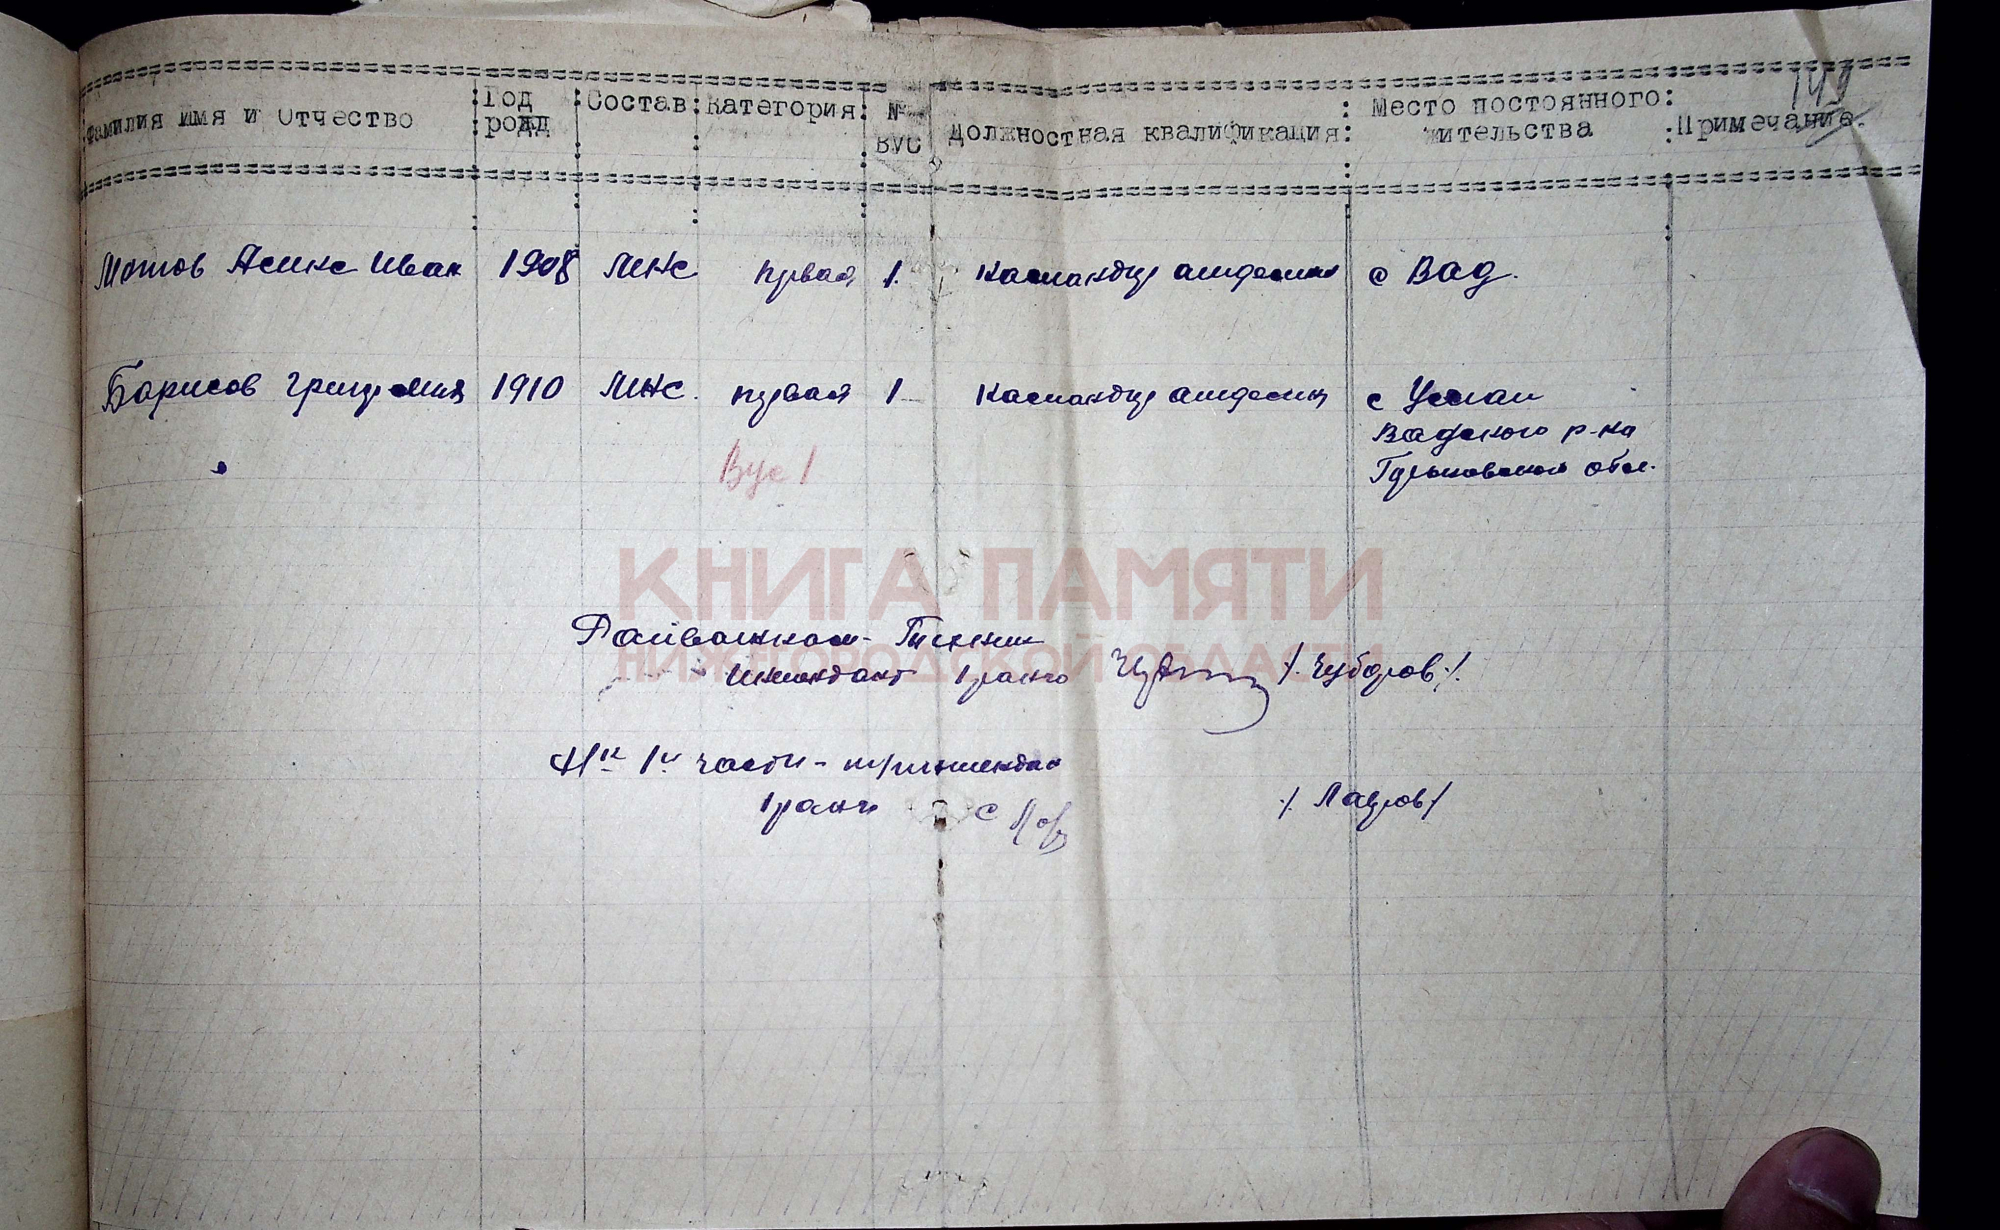 149
Фамилия Имя и Отчество Год рожд Состав Категория № ВУС Должностная квалификация Место постоянного жительства Примечание.
Мотов Алекс Иван 1908 МНС первая 1. Командир отделен с Вад.
Борисов Григ 1910 МНС. первая 1 Командир отделен с Умай
Вадского р-на
Вус 1 Горьковской обл.
КНИГА ПАМЯТИ
НИЖЕГОРОДСКОЙ ОБЛАСТИ
Райвоенком - Техник
интендант 1 ранга /. Чубаров ./.
Н-к 1й части - т/интендан
1 ранг /. Лавров /